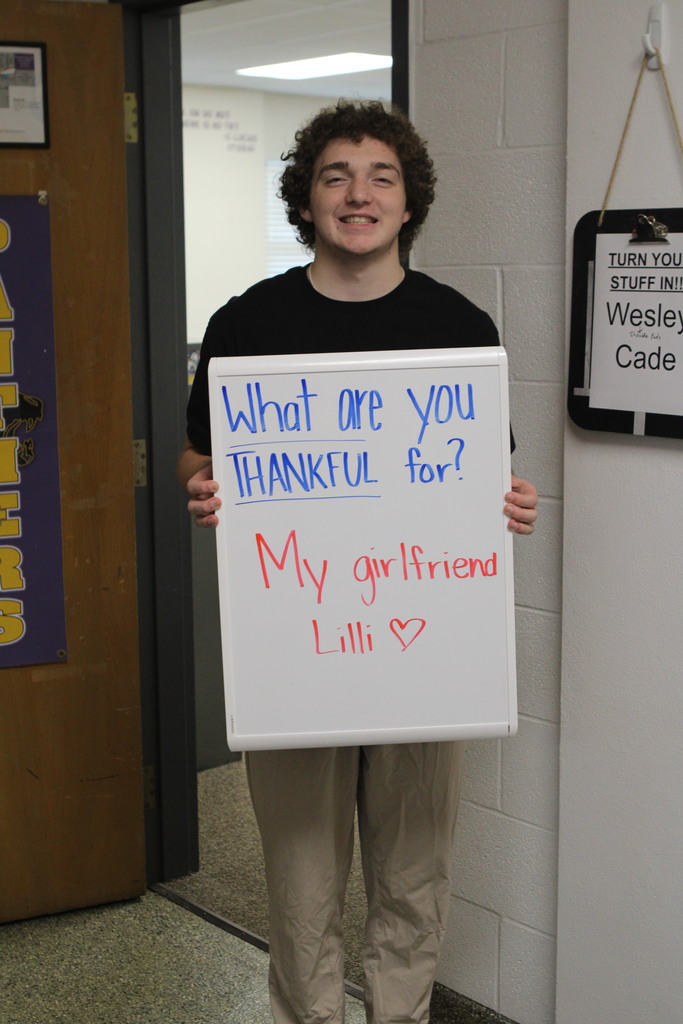 What are you
THANKFUL for?
My girlfriend
Lilli ♡
TURN YOU
STUFF IN!!
Wesley
Cade